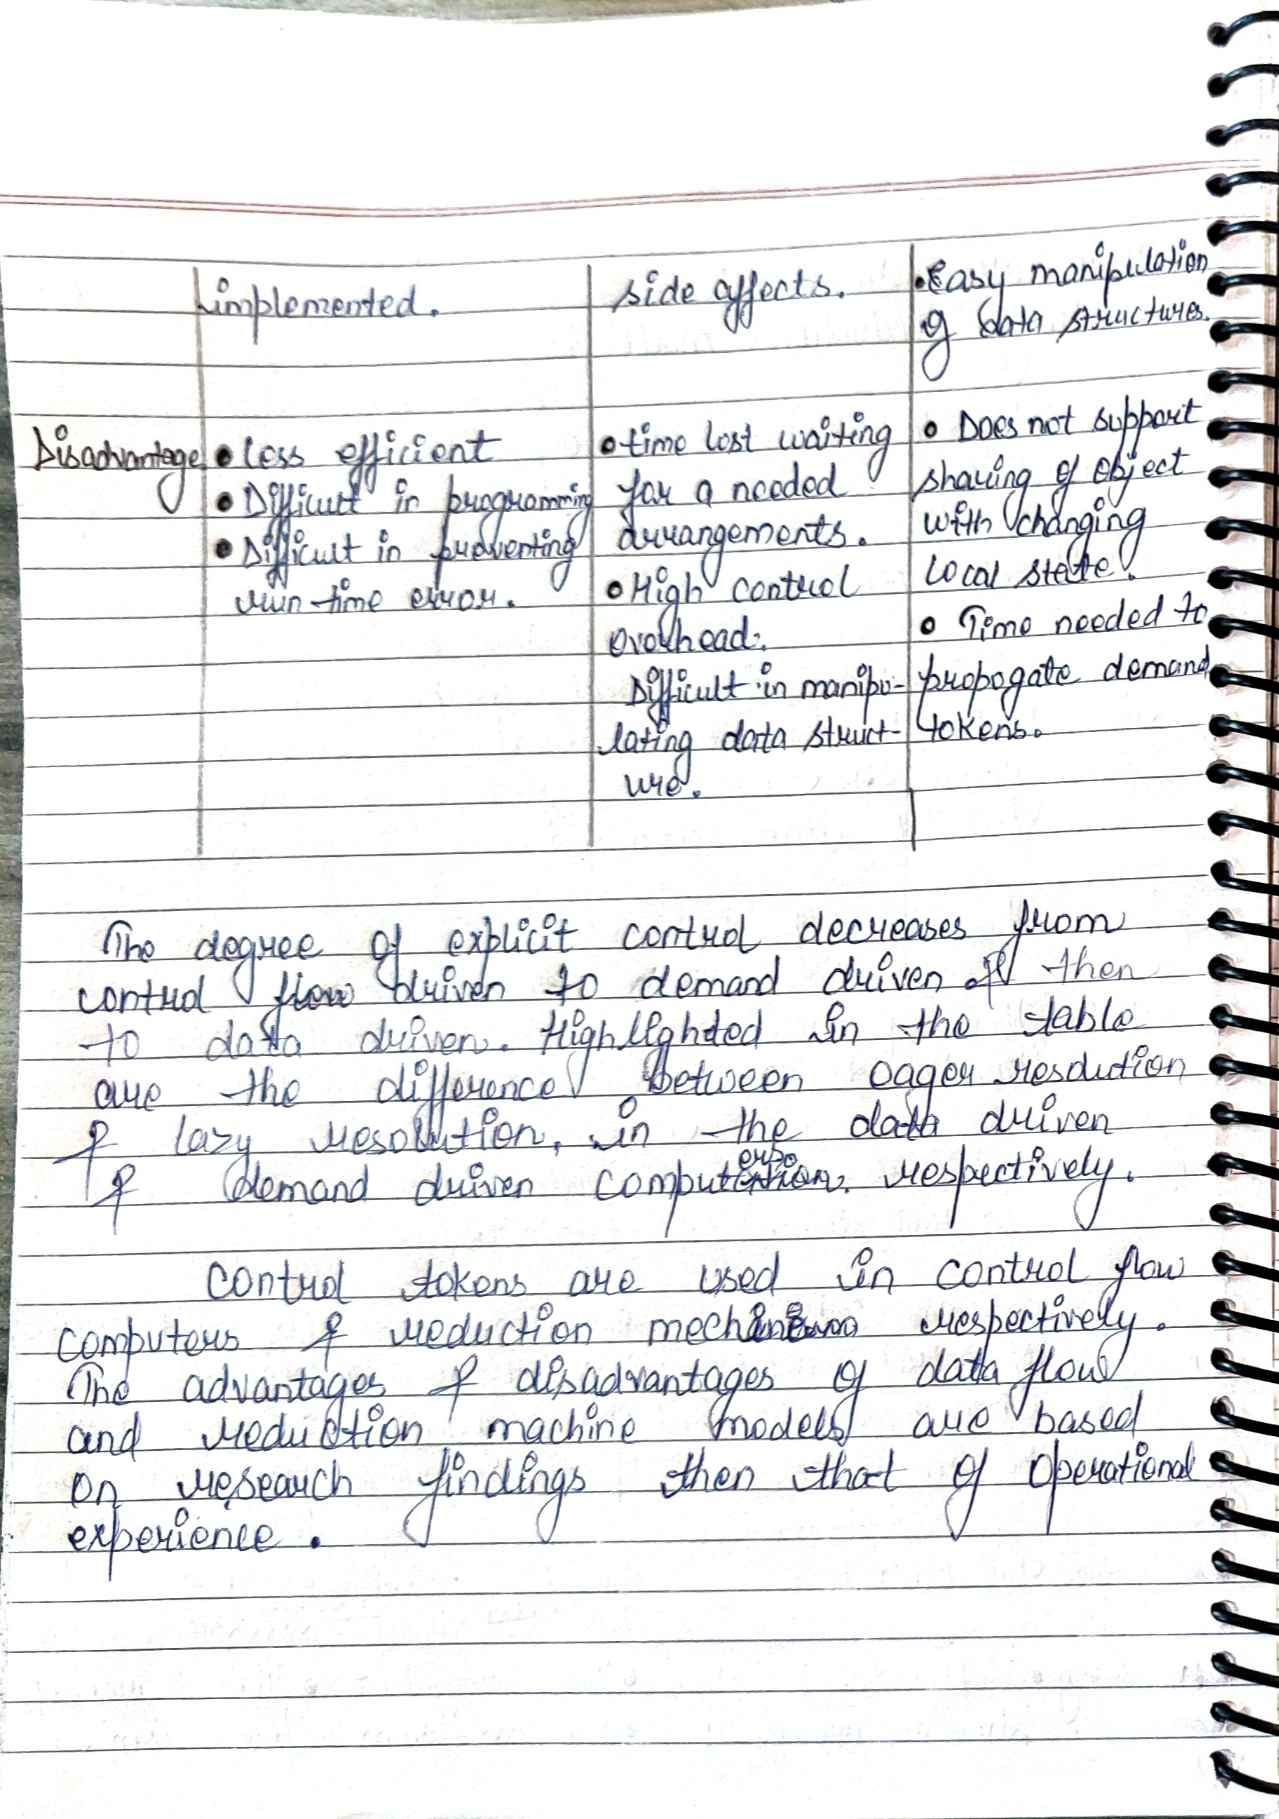 implemented.
side effects.
• Easy manipulation
of data structures.
Disadvantage
• Less efficient
• Difficult in programming
• Difficult in preventing
run-time error.
• time lost waiting
for a needed
arrangements.
• High control
overhead.
Difficult in manipu-
lating data struct-
ure.
• Does not support
sharing of object
with changing
local state.
• Time needed to
propogate demand
tokens.
The degree of explicit control decreases from
control flow driven to demand driven & then
to data driven. Highlighted in the table
are the difference between eager resolution
& lazy resolution, in the data driven
& demand driven computers respectively.
Control tokens are used in control flow
computers & reduction respectively.
The advantages & disadvantages of data flow
and reduction machine models are based
on research findings then that of operational
experience.